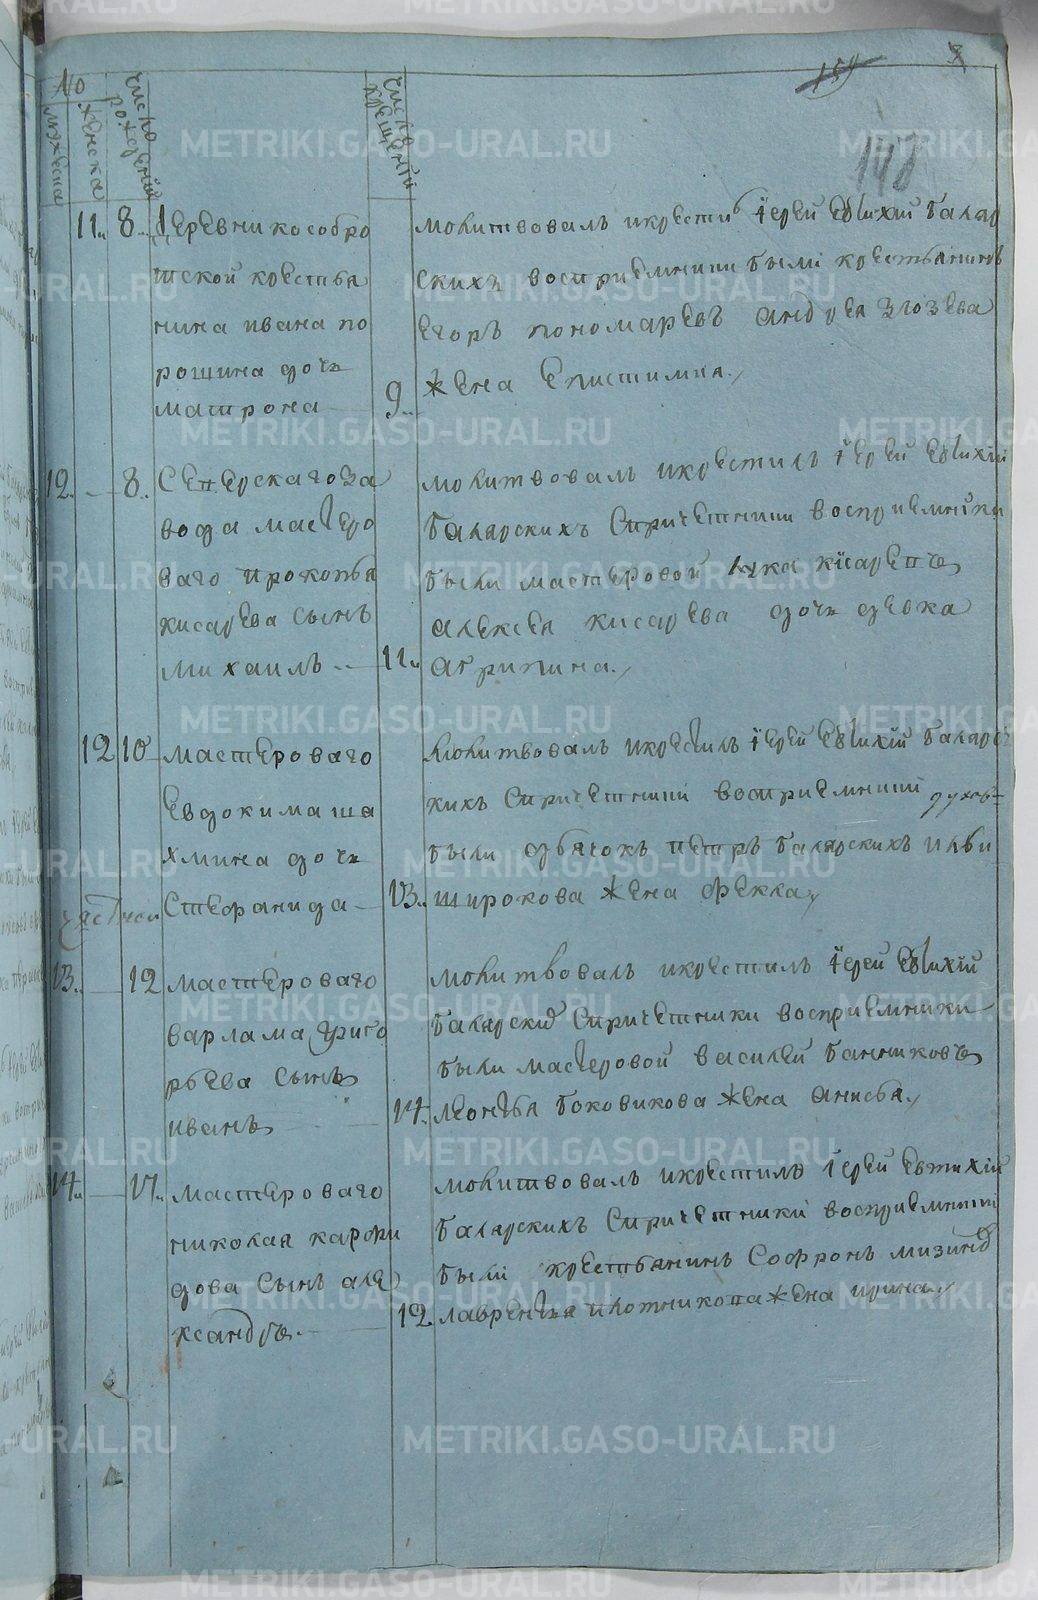 №
мужеска
женска
число рождений
число крещений
148
11 8 Деревни кособро
тской крестья
нина ивана по
рошина дочь
матрона
9
молитвовалъ икрестил їерей Евтихїй баляр
скихъ восприемники были крестьянинъ
Егоръ пономаревъ андрея
жена Епистимия
12 8 Северскаго за
вода мастеро
ваго прокопья
кисарева сынъ
михаилъ
11
молитвовалъ икрестилъ їерей Евтихїй
балярскихъ спричетники восприемники
были мастеровой лука кїсаревъ
алексея кисарева дочь девка
агрипина
12 10 мастероваго
Евдокима ша
хмина дочь
Стефанида
13
молитвовалъ икрестилъ їерей Евтихїй балярс
кихъ спричетники восприемники
были дьячокъ петръ балярскихъ
широкова жена фекла
13 12 мастероваго
варлама григо
рьева сынъ
иванъ
14
молитвовалъ икрестилъ їерей Евтихїй
балярский спричетники восприемники
были мастеровой василей банниковъ
леонтья боковикова жена анисья
14 17 мастероваго
николая карфи
дова сынъ але
ксандръ
12
молитвовалъ икрестилъ їерей Евтихїй
балярскихъ спричетники восприемники
были крестьянинъ Софронъ мизинъ
лаврентья плотникова жена ирина
METRIKI.GASO-URAL.RU